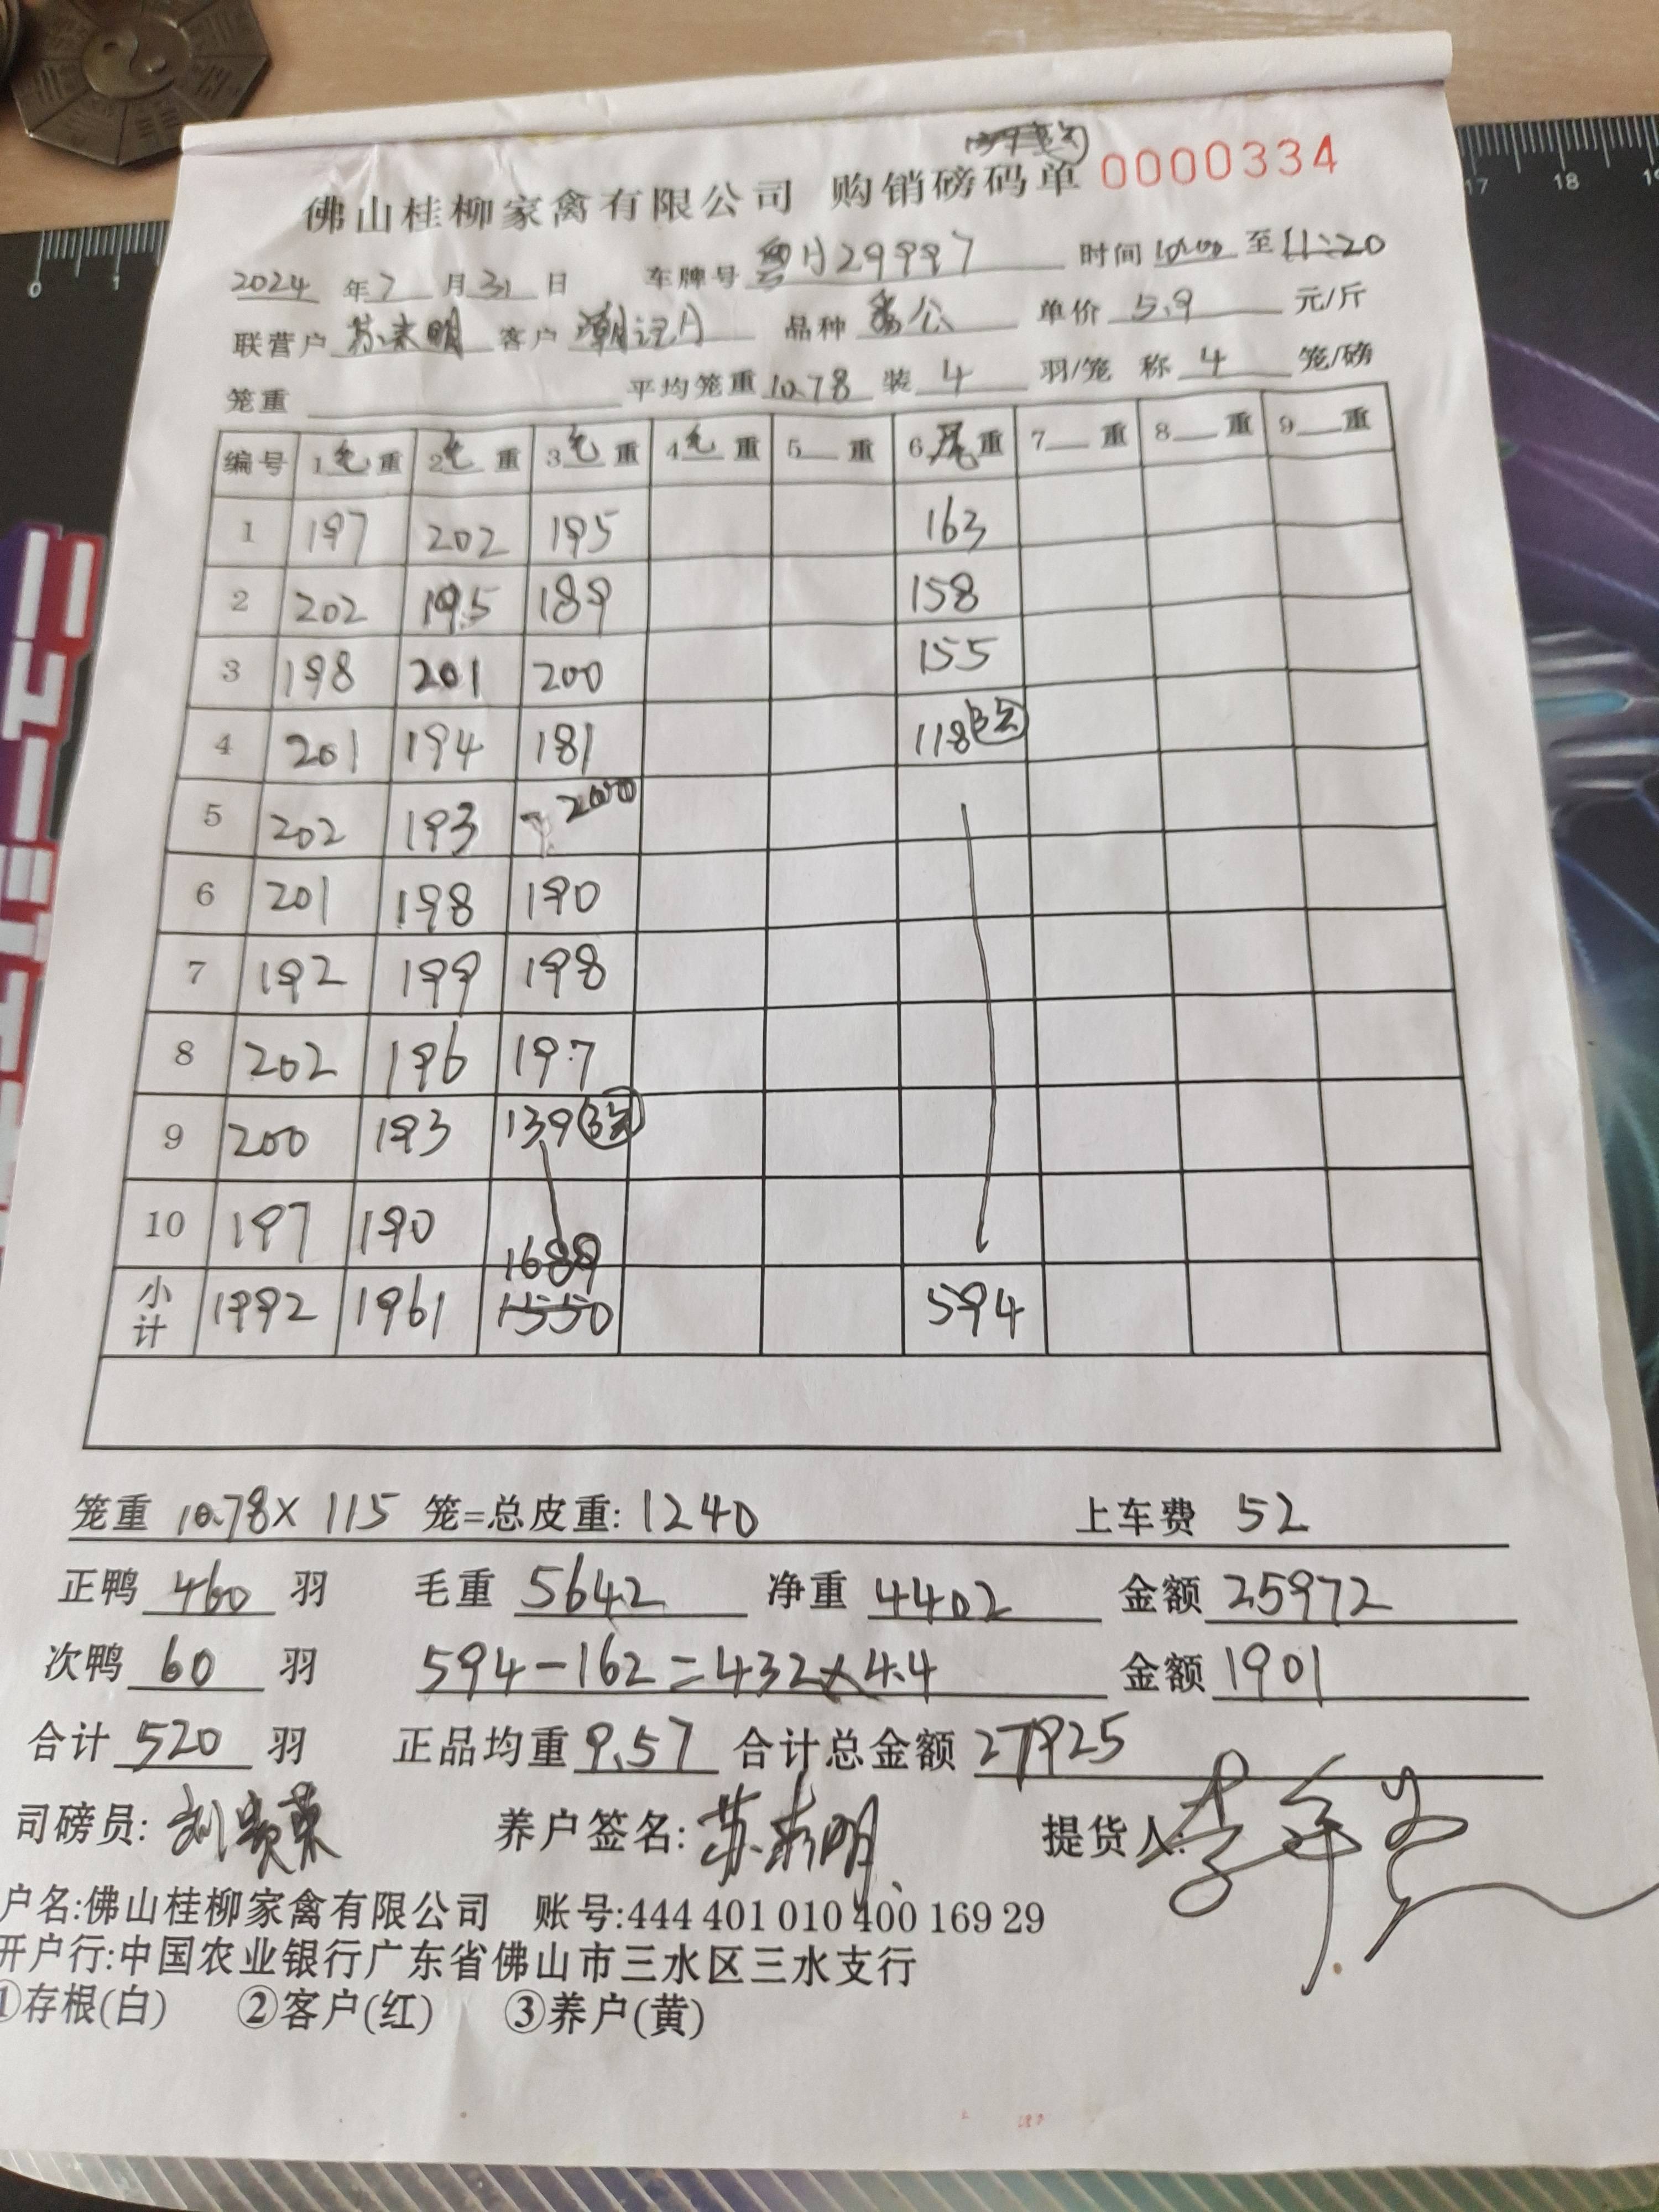 佛山桂柳家禽有限公司 购销磅码单 0000334
2024 年 7 月 31 日 车牌号 粤H29997 时间 10:00 至 11:20
联营户 苏 明 客户 潮记A 品种 番公 单价 5.9 元/斤
笼重 平均笼重 10.78 装 4 羽/笼 称 4 笼/磅
编号 1毛重 2毛重 3毛重 4毛重 5 重 6 重 7 重 8 重 9 重
1 197 202 195 163
2 202 195 189 158
3 198 201 200 155
4 201 194 181 118
5 202 193 200
6 201 198 190
7 192 199 198
8 202 196 197
9 200 193 139
10 197 190
1689
小计 1992 1961 1550 594
笼重 10.78×115 笼=总皮重:1240 上车费 52
正鸭 460 羽 毛重 5642 净重 4402 金额 25972
次鸭 60 羽 594-162=432×4.4 金额 1901
合计 520 羽 正品均重 9.57 合计总金额 27925
司磅员: 刘 荣 养户签名: 苏 明 提货人: 李
户名:佛山桂柳家禽有限公司 账号:444 401 010 400 169 29
开户行:中国农业银行广东省佛山市三水区三水支行
①存根(白) ②客户(红) ③养户(黄)
0 1 17 18